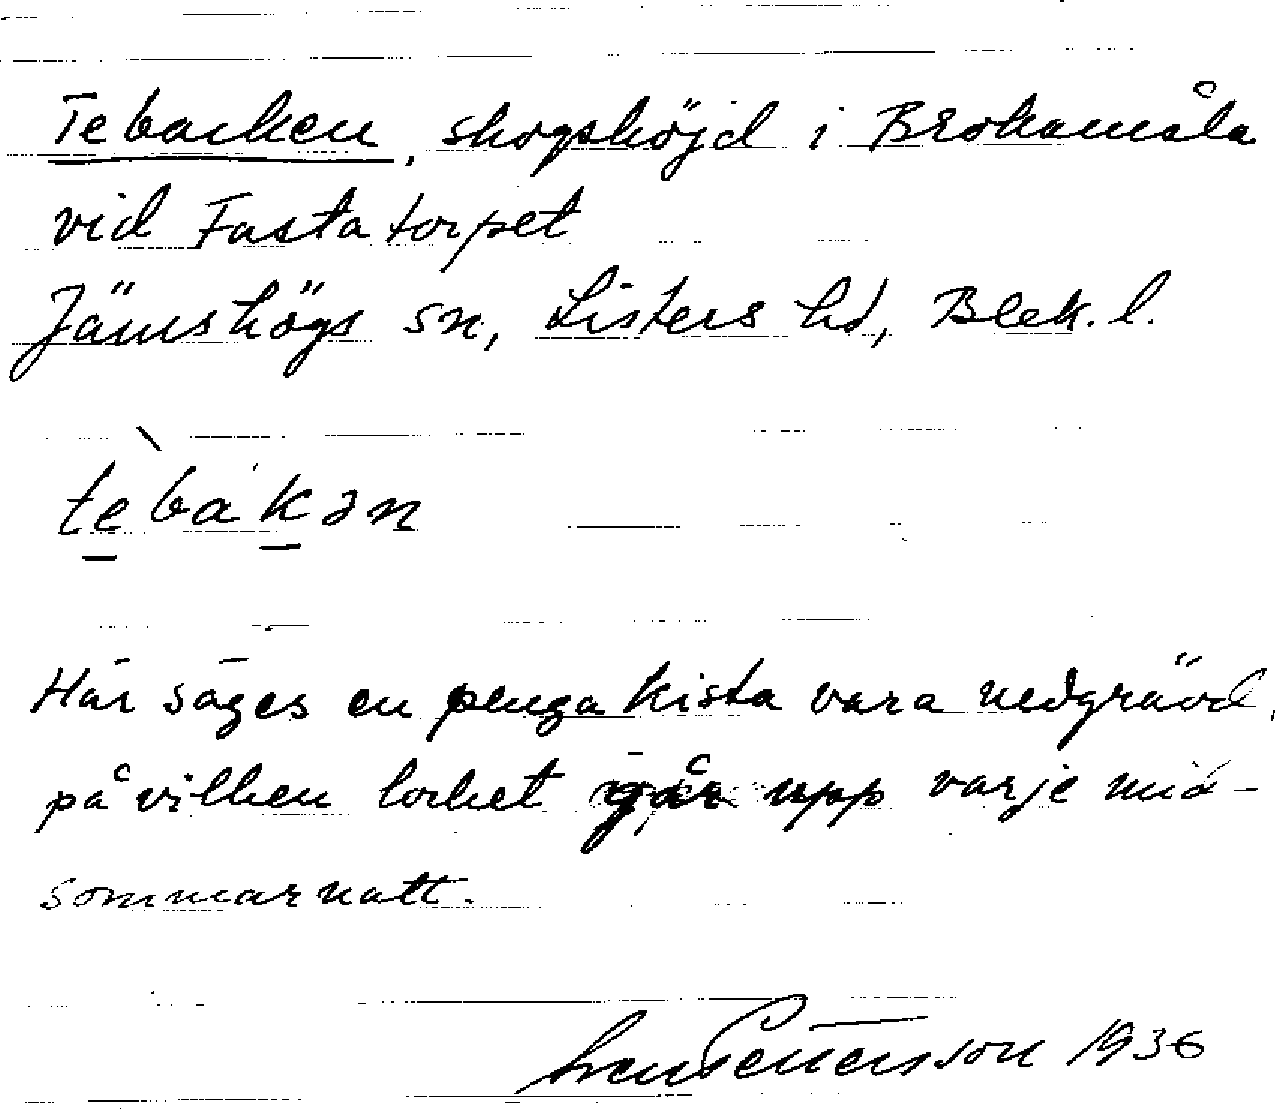 Tebacken, skogshöjd i Brokamåla
vid Fastatorpet
Jämshögs sn, Listers hd, Blek. l.
tèbákən
Här säges en pengakista vara nedgrävd,
på vilken locket går upp varje mid-
sommarnatt.
Sven Pettersson 1936